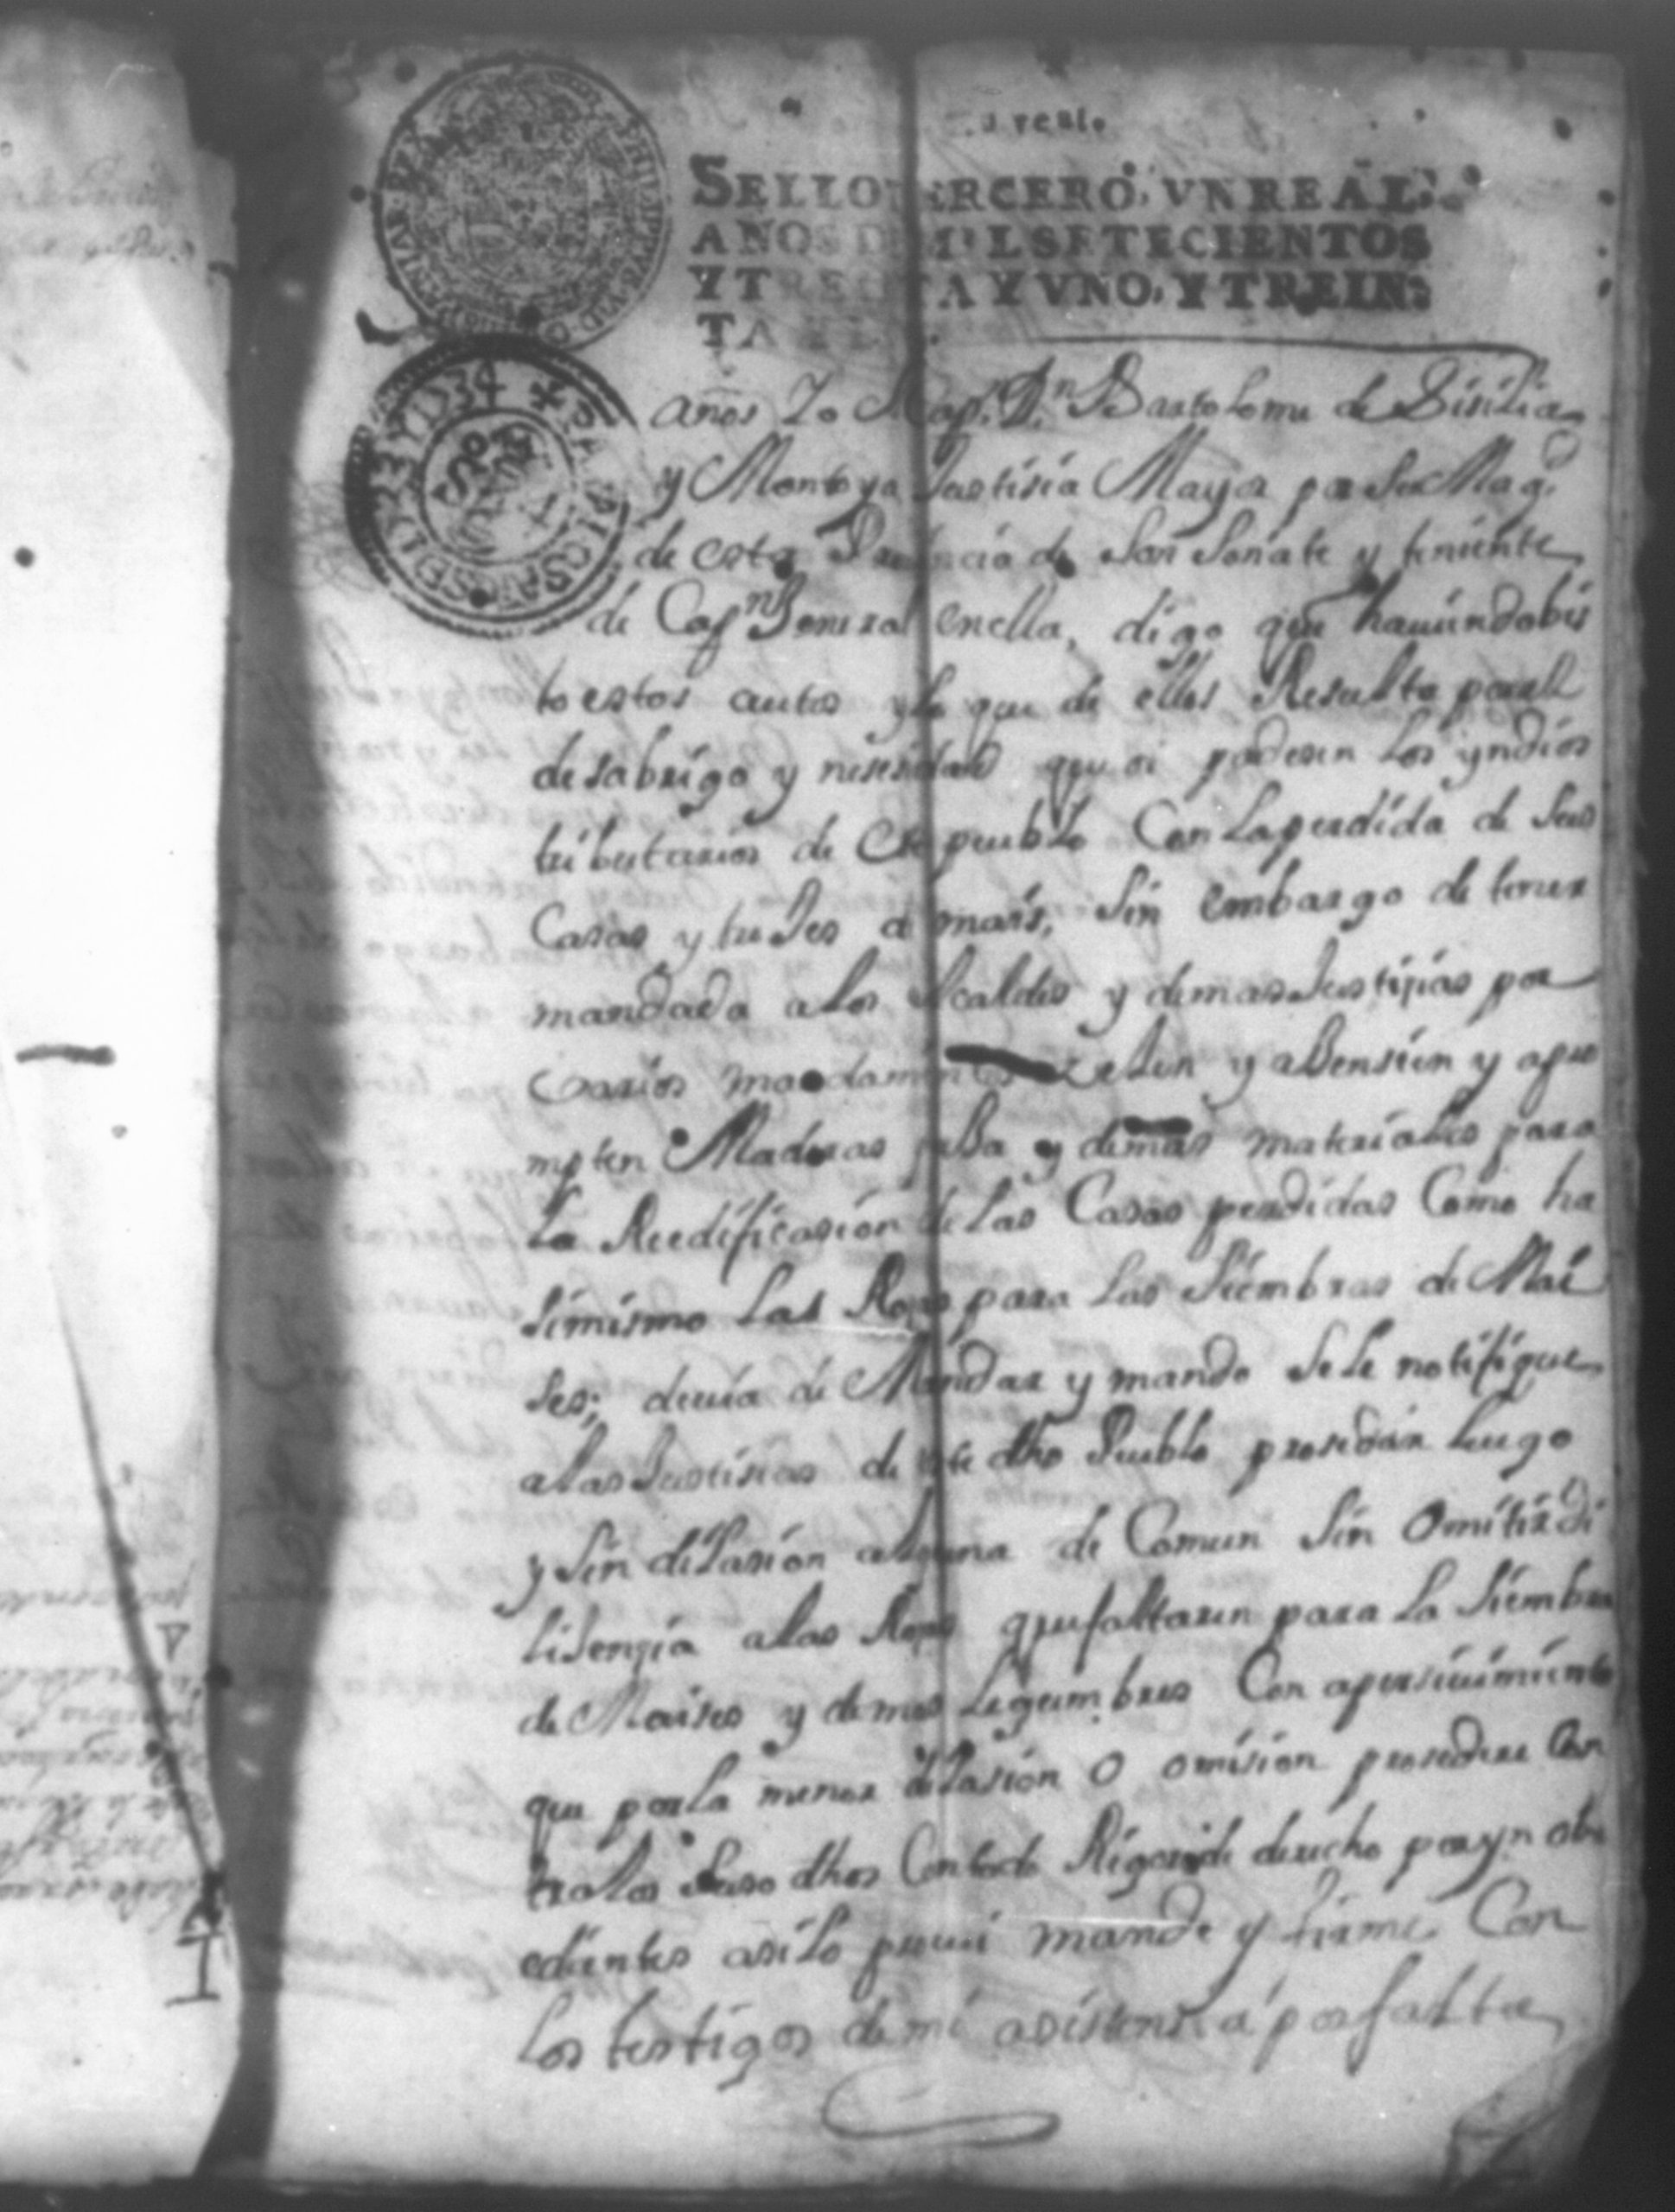 real.
SELLO TERCERO, VN REAL,
AÑOS DE MIL SETECIENTOS
Y TREINTA Y VNO, Y TREIN-
TA
años Yo el Capn. Dn. Bartolome de Sisilia
y Montoya Justisia Mayor por Su Magd
de esta Provincia de Son Sonate y teniente
de Capn General en ella, digo que haviendo bis
to estos autos y lo que de ellos Resulta por el
desabrigo y nesesidad que oi padesen los yndios
tributarios de Este pueblo Con la perdida de Sus
Casas y tuSes a mais, Sin embargo de tener
mandado a los Alcaldes y demas Justisias por
Varios mandamientos zelen y atiensien y apro
mpten Maderas paSa y demas materiales para
La Reedificasion de las Casas perdidas Como ha
simismo Las Rosas para Las Siembras de Mai
ses; devia de Mandar y mando Se le notifique
a las Justisias de este dho Pueblo prosedan luego
y Sin dilasion alguna de Comun Sin Omitir di
lisensia a las Rosas que faltaren para La Siembra
de Maises y demas Legumbres Con apersivimiento
que por la menor dilasion O omision prosedere Con
tra los Suso dhos Con todo Rigor de derecho por yn obe
dientes asi lo provei mande y firme Con
Los testigos de mi asistensia por falta